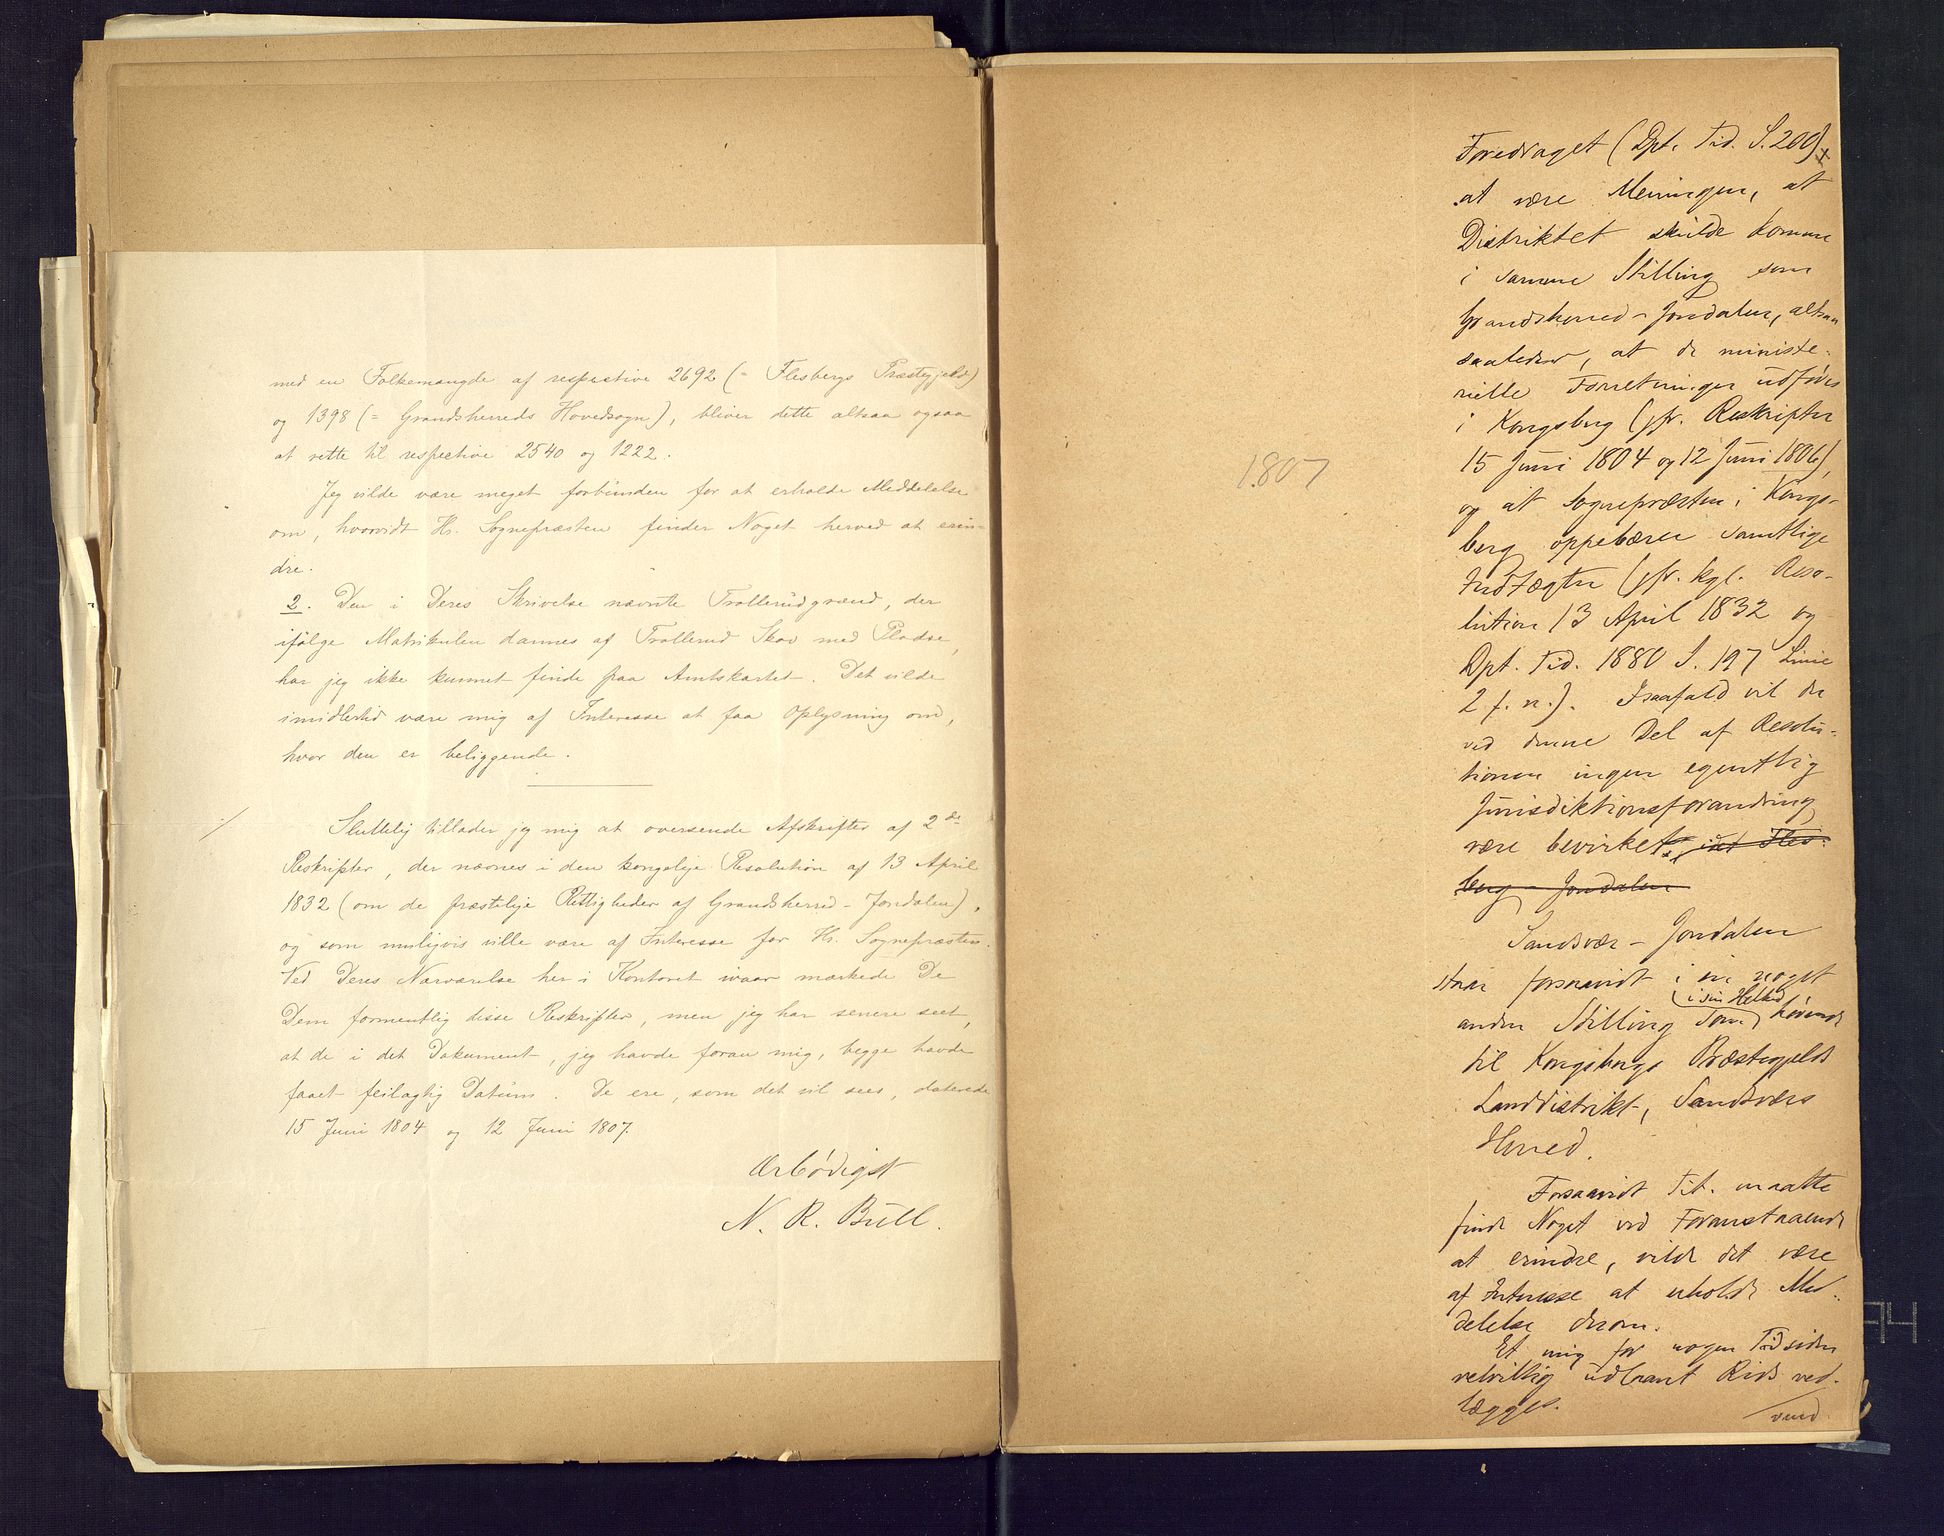 med en Folkemængde af respective 2692 (= Flesbergs Præstegjeld)
og 1398 (= Grandsherreds Hovedsogn), bliver dette altsaa ogsaa
at rette til respective 2540 og 1222.
Jeg vilde være meget forbunden for at erholde Meddelelse
om, hvorvidt Hr. Sognepræsten finder Noget herved at erin-
dre.
2. Den i Deres Skrivelse nævnte Trollerudgrænd, der
ifølge Matrikulen dannes af Trollerud Skov med Pladse,
har jeg ikke kunnet finde paa Amtskartet. Det vilde
imidlertid være mig af Interesse at faa Oplysning om,
hvor den er beliggende.
Sluttelig tillader jeg mig at oversende Afskrifter af 2de
Reskripter, der nævnes i den kongelige Resolution af 13 April
1832 (om de præstelige Rettigheder af Grandsherred-Jondalen),
og som muligvis ville være af Interesse for Hr. Sognepræsten.
Ved Deres Nærværelse her i Kontoret ivaar mærkede De
Dem formentlig disse Reskripter, men jeg har senere seet,
at de i det Dokument, jeg havde foran mig, begge havde
faaet feilagtig Datum. De ere, som det vil sees, daterede
15 Juni 1804 og 12 Juni 1807.
Ærbødigst
N. R. Bull.
1807
Foredraget (Dpt. Tid. S. 200)x
at være Meningen, at
Distriktet skulde komme
i samme Stilling som
Grandsherred-Jondalen, altsaa
saaledes, at de ministe-
rielle Forretninger udføres
i Kongsberg (jfr. Reskripter
15 Juni 1804 og 12 Juni 1806),
og at Sognepræsten i Kongs-
berg oppebærer samtlige
Indtægter (jfr. kgl. Reso-
lution 13 April 1832 og
Dpt. Tid. 1880 S. 197 Linie
2 f. n.). Isaafald vil der
ved denne Del af Resolu-
tionen ingen egentlig
Jurisdiktionsforandring
være bevirket, ift Fles-
berg-Jondalen
Sandsvær-Jondalen
staar forsaavidt i en noget
i sin Helhed
anden Stilling som hørende
til Kongsbergs Præstegjelds
Landdistrikt, Sandsværs
Herred.
Forsaavidt Tit. maatte
finde Noget ved Foranstaaende
at erindre, vilde det være
af Interesse at erholde Med-
delelse derom.
Et mig for nogen Tid siden
velvillig udlaant Rids ved-
lægges.